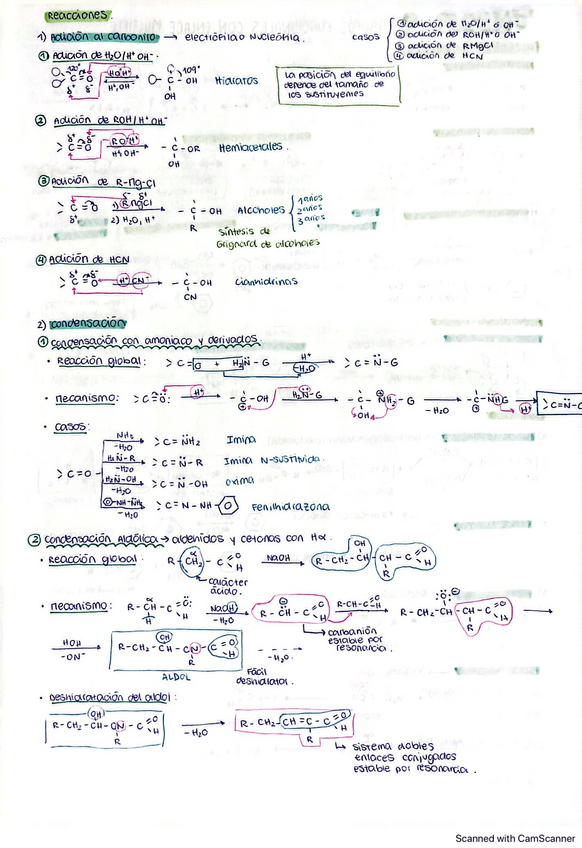 Reacciones
1) Adición al carbonilo → electrófila o Nucleófila. casos
① adición de H₂O/H⁺ ó OH⁻
② adición del ROH/H⁺ ó OH⁻
③ adición de RMgCl
④ adición de HCN
① Adición de H₂O/H⁺ OH⁻
120° C=O δ⁺ δ⁻ HO H⁺ H⁺, OH⁻ 109° C - OH OH Hidratos
La posición del equilibrio
depende del tamaño de
los sustituyentes
② Adición de ROH/H⁺ OH⁻
C=O RO H⁺ H⁺ OH⁻ - C - OR OH Hemiacetales.
③ Adición de R-Mg-Cl
C=O δ⁺ 1) RMgCl 2) H₂O, H⁺ - C - OH R Alcoholes 1arios 2arios 3arios
Síntesis de
Grignard de alcoholes
④ Adición de HCN
C=O H⁺ CN⁻ - C - OH CN Cianhidrinas
2) condensación
① condensación con amoniaco y derivados.
· Reacción global: C=O + H₂N̈-G H⁺ -H₂O C=N̈-G
· Mecanismo: C=Ö: H⁺ - C - OH H₂N̈-G - C - NH₂-G OH -H₂O - C - N̈HG H⁺ C=N̈-G
· casos:
C=O
NH₃ -H₂O C=N̈H₂ Imina
H₂N̈-R -H₂O C=N̈-R Imina N-sustituida.
H₂N̈-OH -H₂O C=N̈-OH oxima
-NH-NH₂ -H₂O C=N-NH- Fenilhidrazona
② condensación Aldólica → aldehídos y cetonas con Hα.
· Reacción global: R-CH₂-C=O H NaOH R-CH₂-CH-CH-C=O OH R H
carácter
ácido.
· Mecanismo: R-CH-C=O: H H NaOH R-C̈H-C=O H R-CH-C=O H R-CH₂-CH-CH-C=O :Ö:⊖ R H
carbanión
estable por
resonancia.
HOH -OH⁻ R-CH₂-CH-CH-C=O OH R H -H₂O
ALDOL Fácil
deshidratar.
· Deshidratación del aldol:
R-CH₂-CH-CH-C=O OH R H -H₂O R-CH₂-CH=C-C=O R H
sistema dobles
enlaces conjugados
estable por resonancia.
Scanned with CamScanner